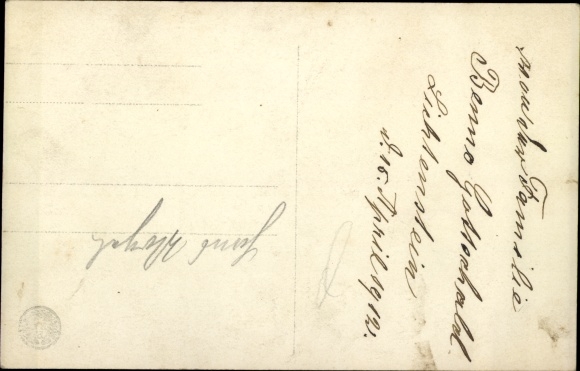 von der Familie
Benno Gottschald
Lichtenstein
d. 16. April 1912.